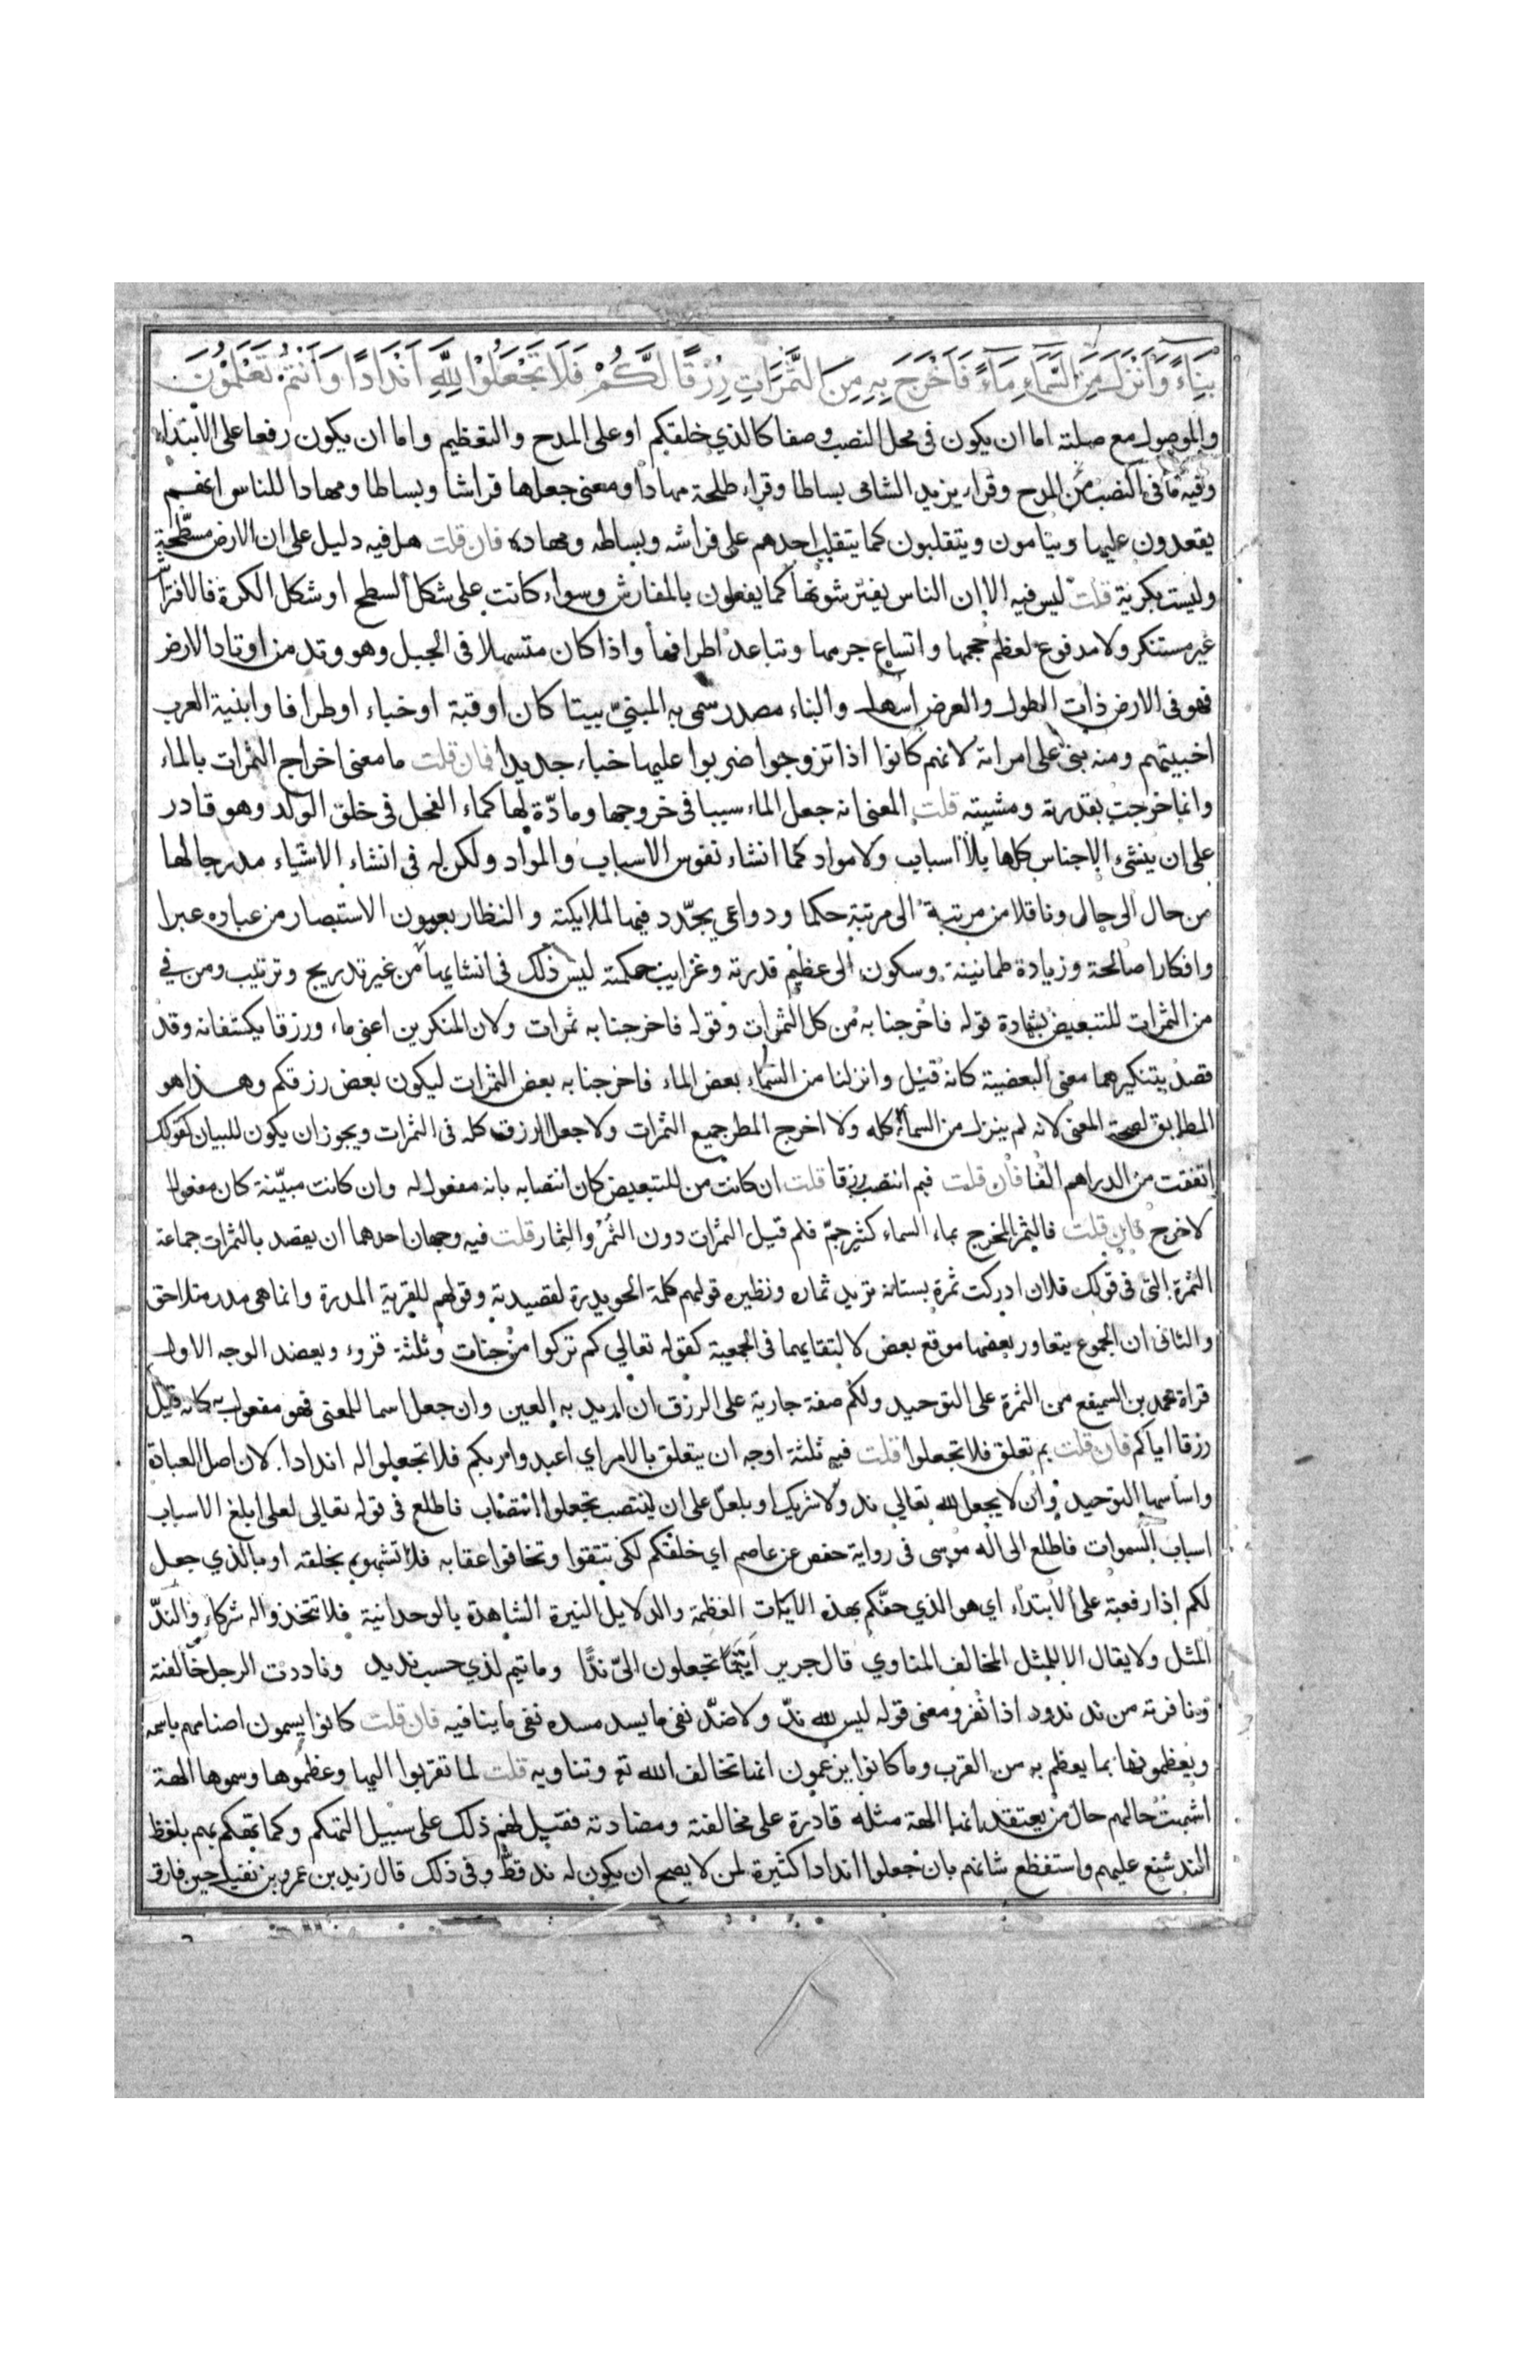 بِنَاءً وَأَنْزَلَ مِنَ السَّمَاءِ مَاءً فَأَخْرَجَ بِهِ مِنَ الثَّمَرَاتِ رِزْقًا لَّكُمْ فَلَا تَجْعَلُوْا لِلّٰهِ اَنْدَادًا وَاَنْتُمْ تَعْلَمُوْنَ
والموصول مع صلته اما ان يكون فى محل النصب وصفا كالذي خلقكم او على المدح والتعظيم واما ان يكون رفعا على الابتداء
وفيه ما فى النصب من المدح وقراء يزيد الشامى بساطا وقراء طلحة مهادا ومعنى جعلها فراشا وبساطا ومهادا للناس انهم
يقعدون عليها وينامون ويتقلبون كما يتقلب احدهم على فراشه وبساطه ومهاده فان قلت هل فيه دليل على ان الارض مسطحة
وليست بكرية قلت ليس فيه الا ان الناس يفترشونها كما يفعلون بالمفارش وسواء كانت على شكل السطح او شكل الكرة فالافتراش
غير مستنكر ولا مدفوع لعظم حجمها واتساع جرمها وتباعد اطرافها واذا كان متسهلا فى الجبل وهو وتد من اوتاد الارض
فهو فى الارض ذات الطول والعرض اسهل والبناء مصدر سمى به المبنيّ بيتا كان او قبة او خباء او طرافا وابنية العرب
اخبيتهم ومنه بنى على امراته لانهم كانوا اذا تزوجوا ضربوا عليها خباء جديدا فان قلت ما معنى اخراج الثمرات بالماء
وانما خرجت بقدرته ومشيته قلت المعنى انه جعل الماء سببا فى خروجها ومادّة لها كماء الفحل فى خلق الولد وهو قادر
على ان ينشىء الاجناس كلها بلا اسباب ولا مواد كما انشاء نفوس الاسباب والمواد ولكن له فى انشاء الاشياء مدرجا لها
من حال الى حال وناقلا من مرتبة الى مرتبة حكما ودواعى يجدّد فيها لملايكته والنظار بعيون الاستبصار من عباده عبرا
وافكارا صالحة وزيادة طمانينة وسكون الى عظيم قدرته وغرايب حكمته ليس ذلك فى انشايها من غير تدريج وترتيب ومن في
من الثمرات للتبعيض بشهادة قوله فاخرجنا به من كل الثمرات وقوله فاخرجنا به ثمرات ولان المنكرين اعنى ماء ورزقا يكتنفانه وقد
قصد بتنكيرهما معنى البعضية كانه قيل وانزلنا من السماء بعض الماء فاخرجنا به بعض الثمرات ليكون بعض رزقكم وهذا هو
المطابق لصحة المعنى لانه لم ينزل من السماء كله ولا اخرج المطر جميع الثمرات ولا جعل الرزق كله فى الثمرات ويجوز ان يكون للبيان كقولك
انفقت من الدراهم الفا فان قلت فبم انتصب رزقا قلت ان كانت من للتبعيض كان انتصابه بانه مفعول له وان كانت مبيّنة كان مفعولا
لاخرج فان قلت فالثمر المخرج بماء السماء كثير جمّ فلم قيل الثمرات دون الثمر والثمار قلت فيه وجهان احدهما ان يقصد بالثمرات جماعة
الثمرة التى فى قولك فلان ادركت ثمرة بستانه تريد ثماره ونظيره قولهم كلمة الحويدرة لقصيدته وقولهم للقرية المدرة وانما هى مدر متلاحق
والثانى ان الجموع يتعاور بعضها موقع بعض لالتقايهما فى الجمعية كقوله تعالي كم تركوا من جنات وثلثة قروء ويعضد الوجه الاول
قراة محمد بن السميفع من الثمرة على التوحيد ولكم صفة جارية على الرزق ان اريد به العين وان جعل اسما للمعنى فهو مفعول به كانه قيل
رزقا اياكم فان قلت بم تعلق فلا تجعلوا قلت فيه ثلثة اوجه ان يتعلق بالامر اي اعبدوا ربكم فلا تجعلوا له اندادا لان اصل العبادة
واساسها التوحيد وان لا يجعل لله تعالي ند ولا شريك او بلعلّ على ان ينتصب تجعلوا انتصاب فاطلع فى قوله تعالى لعلى ابلغ الاسباب
اسباب السموات فاطلع الى اله موسى فى رواية حفص عن عاصم اي خلقكم لكى تتقوا وتخافوا عقابه فلا تشبهوه بخلقه او بالذي جعل
لكم اذا رفعته على الابتداء اي هو الذي حفّكم بهذه الايات العظيمة والدلايل النيرة الشاهدة بالوحدانية فلا تتخذوا له شركاء والندّ
المثل ولا يقال الا للمثل المخالف المناوي قال جرير اَتَيْمًا تجعلون اليّ ندًّا وما تيم لذي حسب نديد وناددت الرجل خالفته
ونافرته من ند ندود اذا نفر ومعنى قوله ليس لله ندّ ولا ضدّ نفى ما يسد مسده نفى ما ينافيه فان قلت كانوا يسمون اصنامهم باسمه
ويعظمونها بما يعظم به من القرب وما كانوا يزعمون انها تخالف الله تع وتناويه قلت لما تقربوا اليها وعظموها وسموها الهة
اشبهت حالهم حال من يعتقد انها الهة مثله قادرة على مخالفته ومضادته فقيل لهم ذلك على سبيل التهكم وكما تهكم بهم بلفظ
الند شنع عليهم واستفظع شانهم بان جعلوا اندادا كثيرة لمن لا يصح ان يكون له ند قط وفى ذلك قال زيد بن عمرو بن نفيل حين فارق